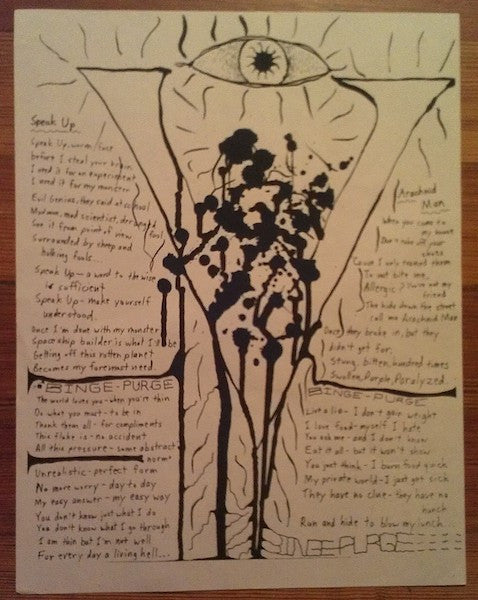 Speak Up
Speak Up, worm face
before I steal your brain
I need it for an experiment
I need it for my monster
Evil Genius, they said at school
Madman, mad scientist, deranged fool
See it from point of view
Surrounded by sheep and
hulking fools...
Speak Up - a word to the wise
is sufficient
Speak Up - make yourself
understood.
Once I'm done with my monster
Spaceship builder is what I'll be
Getting off this rotten planet
Becomes my foremost need.
BINGE-PURGE
The world loves you - when you're thin
Do what you must - to be in
Thank them all - for compliments
This fluke is - no accident
All this pressure - some abstract
norm
Unrealistic - perfect form
No more worry - day to day
My easy answer - my easy way
You don't know just what I do
You don't know what I go through
I am thin but I'm not well
For every day a living hell...
Arachnid
Man
When you come to
my house
Don't take off your
shoes
Cause I only trained them
To not bite me.
Allergic? You're not my
friend
The kids down the street
call me Arachnid Man
Once they broke in, but they
didn't get far.
Stung, bitten, hundred times
Swollen, Purple, Paralyzed.
BINGE-PURGE
Live a lie - I don't gain weight
I love food - myself I hate
You ask me - and I don't know
Eat it all - but it won't show
You just think - I burn food quick
My private world - I just get sick
They have no clue - they have no
hunch
Run and hide to blow my lunch...
BINGE PURGE